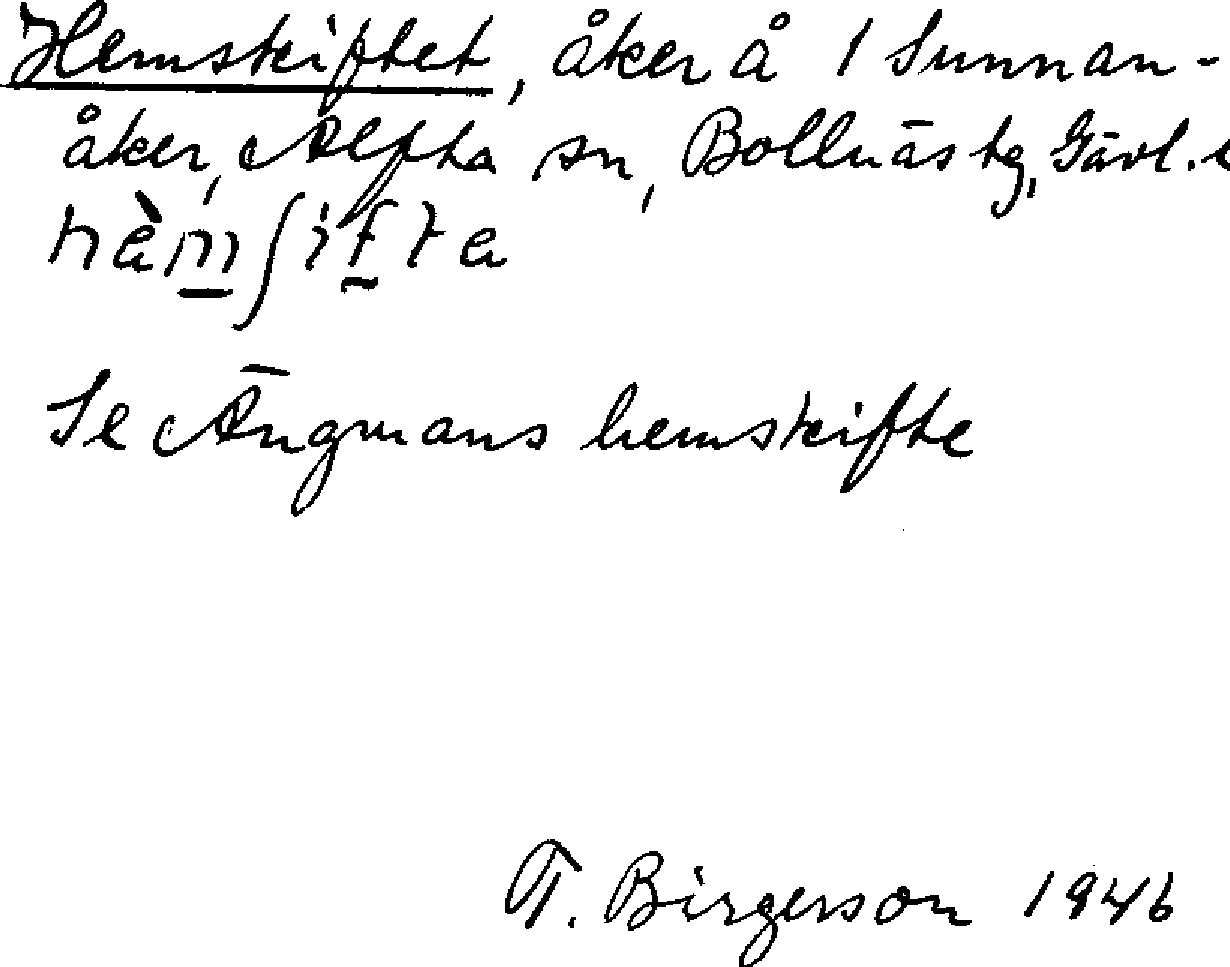 Hemskiftet, åker å 1 Sunnan-
åker, Alfta sn, Bollnäs tg, Gävl.
hèm∫ifta
Se Ängmans hemskifte
T. Birgerson 1946